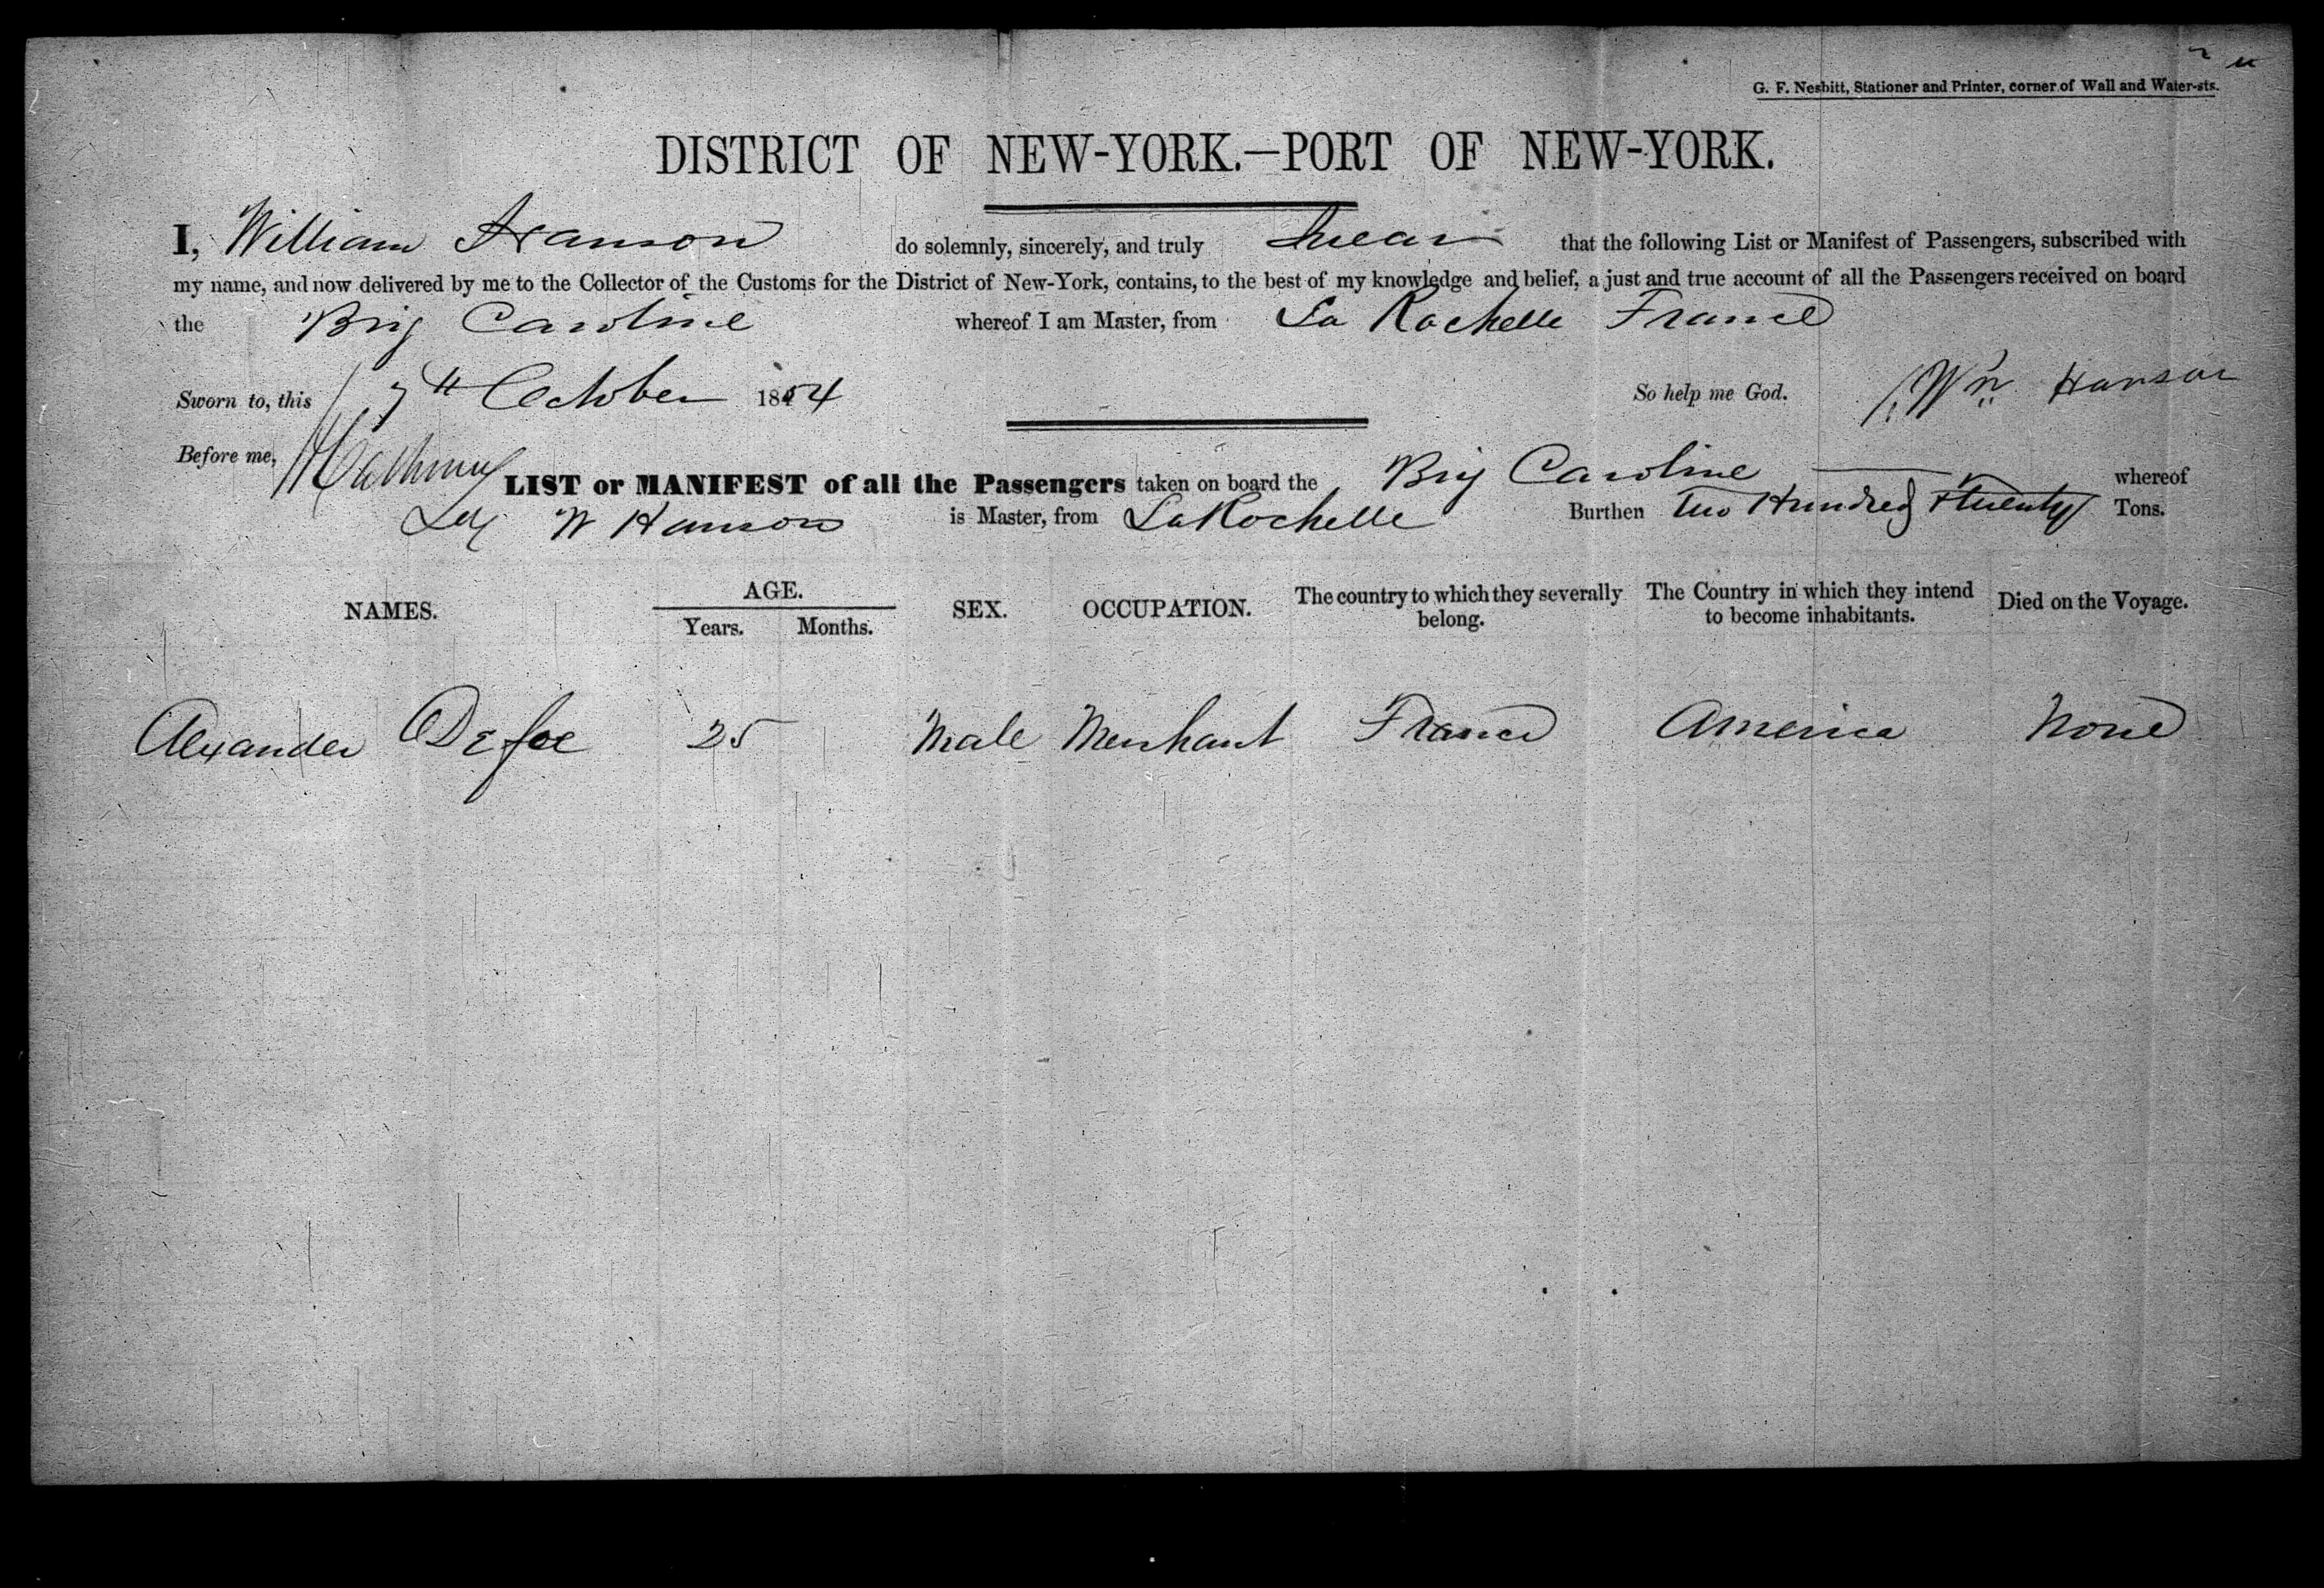 G. F. Nesbitt, Stationer and Printer, corner of Wall and Water-sts.
DISTRICT OF NEW-YORK.—PORT OF NEW-YORK.
I, William Hanson do solemnly, sincerely, and truly swear that the following List or Manifest of Passengers, subscribed with
my name, and now delivered by me to the Collector of the Customs for the District of New-York, contains, to the best of my knowledge and belief, a just and true account of all the Passengers received on board
the Brig Caroline whereof I am Master, from La Rochelle France
Sworn to, this 7th October 1854 So help me God. Wm Hanson
Before me,
LIST or MANIFEST of all the Passengers taken on board the Brig Caroline whereof
W Hanson is Master, from La Rochelle Burthen Two Hundred & twenty Tons.
NAMES. AGE. SEX. OCCUPATION. The country to which they severally The Country in which they intend Died on the Voyage.
Years. Months. belong. to become inhabitants.
Alexander Defoe 25 Male Merchant France America None